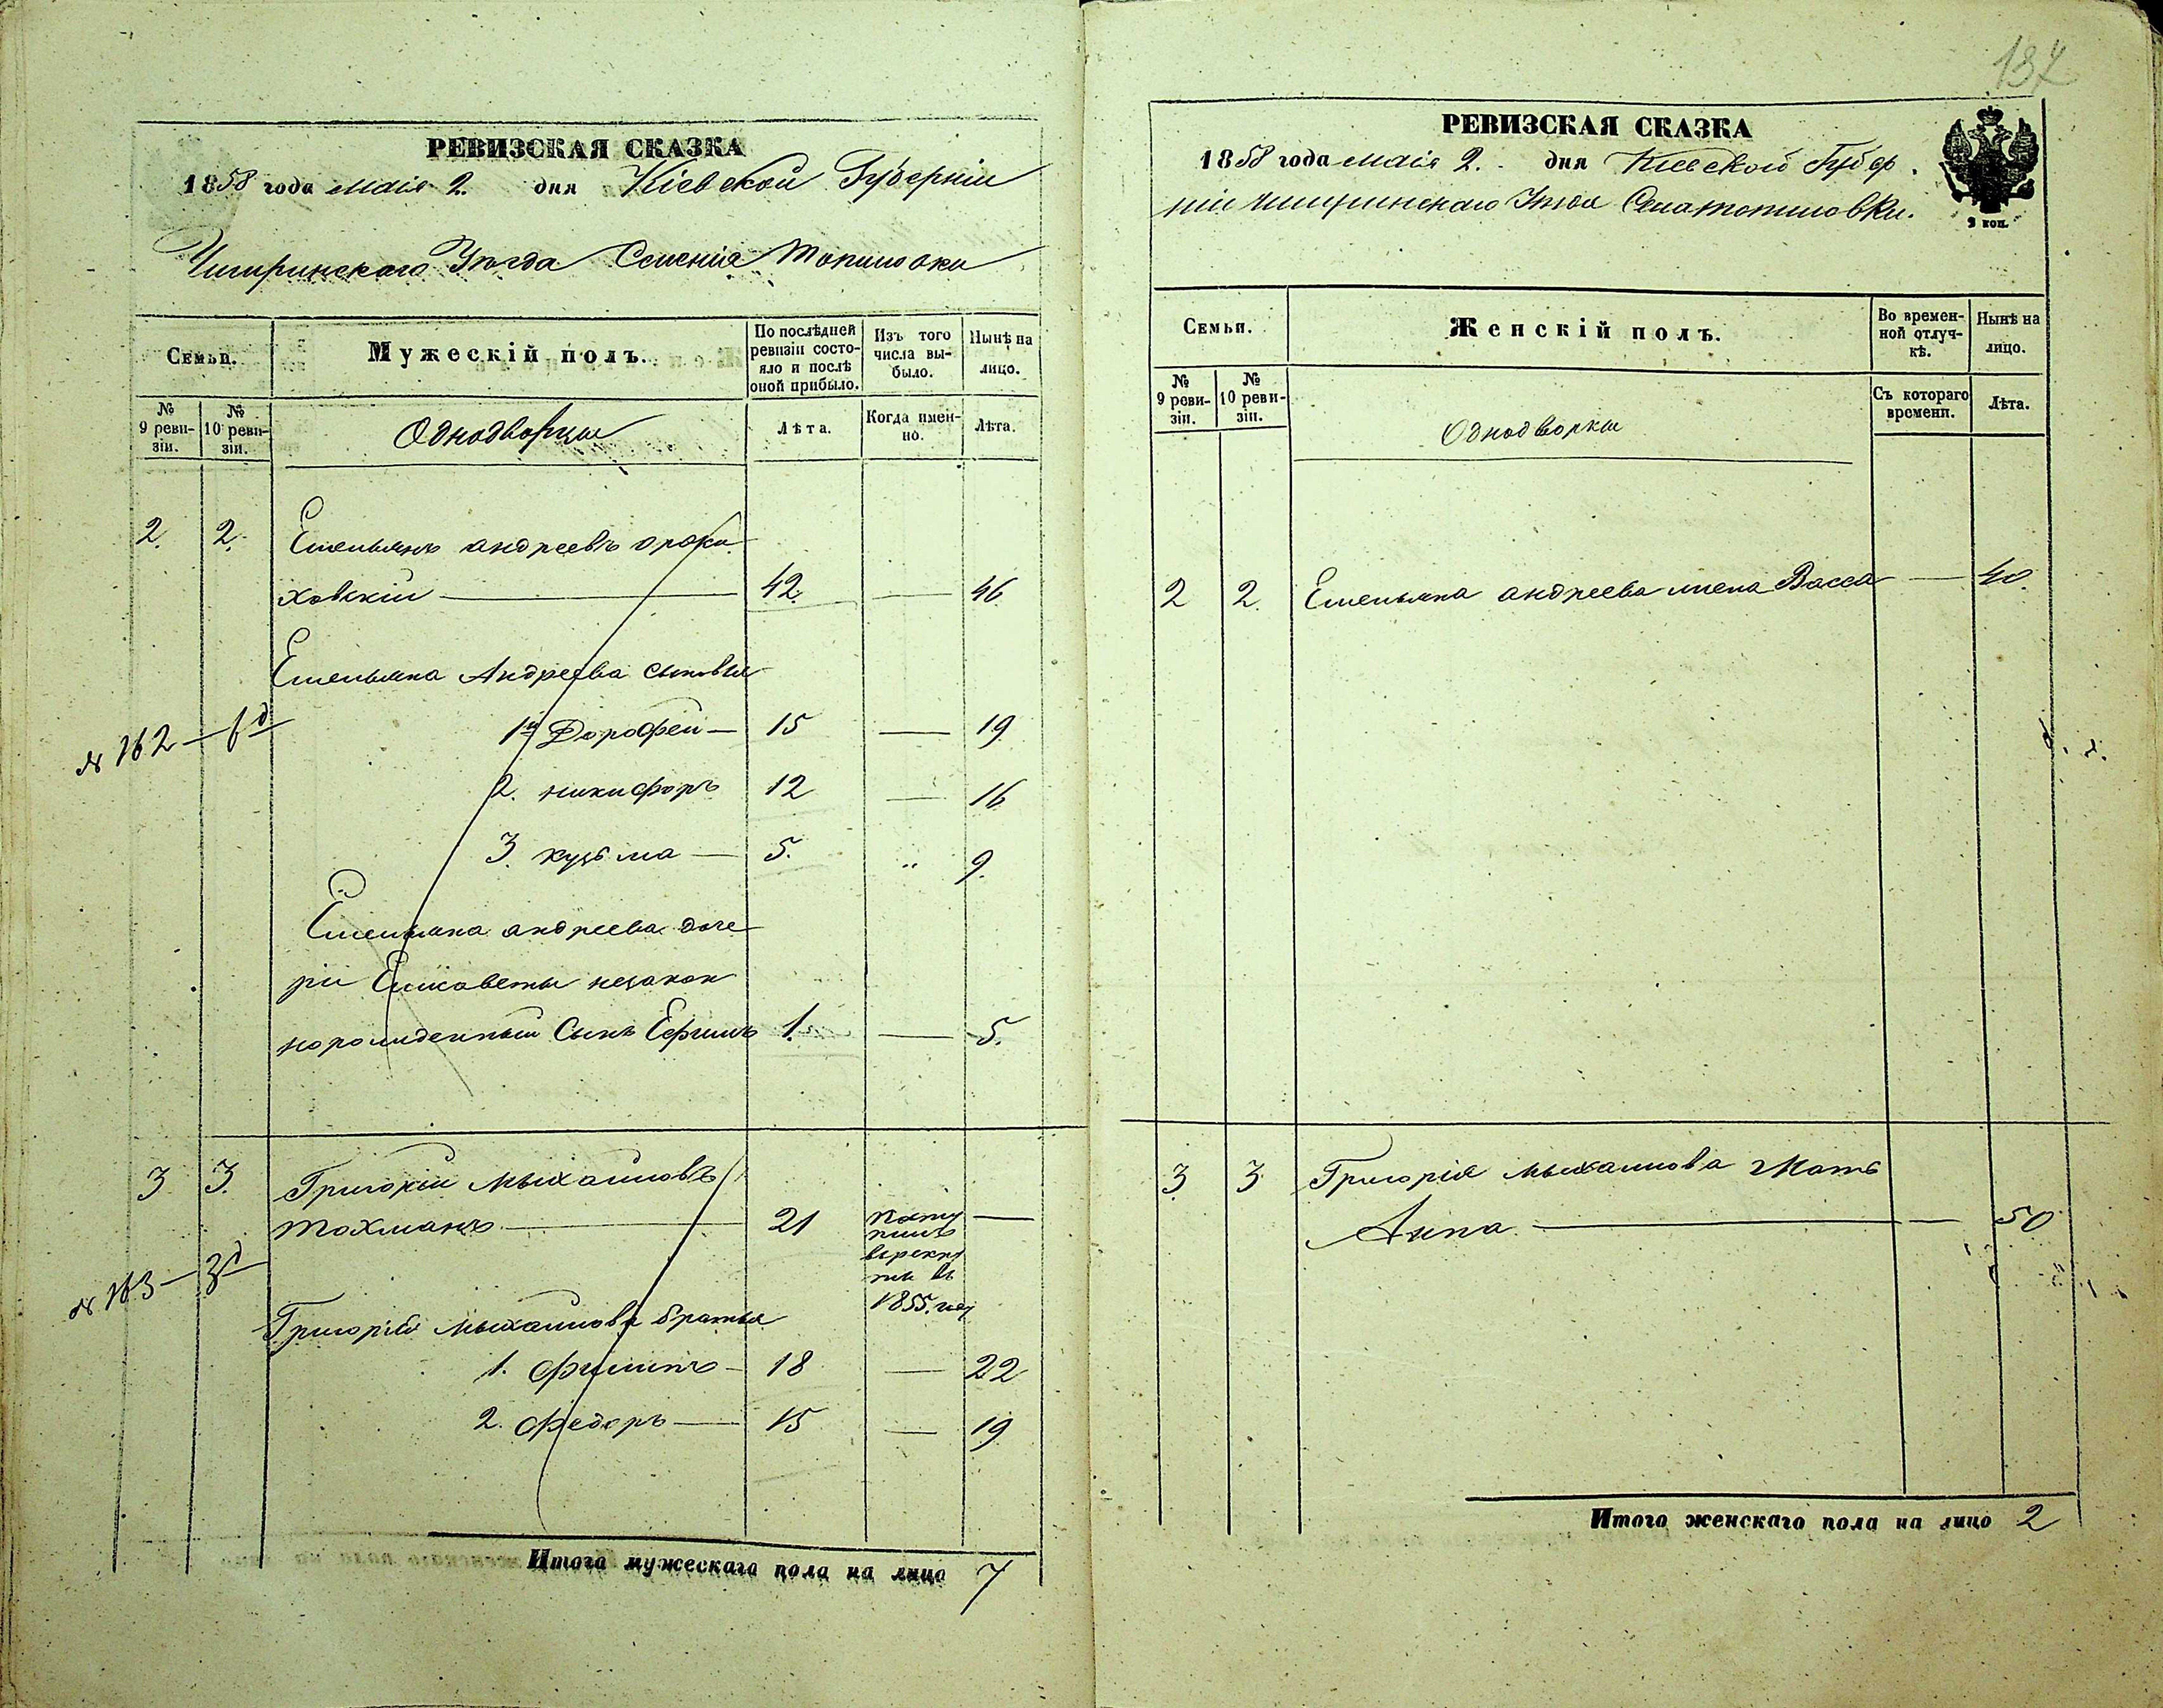 137
РЕВИЗСКАЯ СКАЗКА
1858 года маія 2. дня Кіевской Губерніи
Чигиринскаго Уѣзда Селенія Топиловки
Семьи.
Мужескій полъ.
По послѣдней ревизіи состояло и послѣ оной прибыло.
Изъ того числа выбыло.
Нынѣ на лицо.
№ 9 ревизіи.
№ 10 ревизіи.
Однодворцы
Лѣта.
Когда именно.
Лѣта.
2. 2. Емельянъ андреевъ
ховскій 42. — 46.
Емельяна Андреева сыновья
№ 162 —
1й Дорофей — 15 — 19
2. никифоръ 12 — 16
3. кузьма — 5. „ 9.
Емельяна андреева доче
ри Елисаветы незакон
норожденный Сынъ Ефимъ 1. — 5.
3 3. Григорій Мыхайловъ
Тохманъ — 21 посту —
пилъ
врекру
ты въ
1855. году
№ 163 —
Григорія Мыхайлова братья
1. Филипъ — 18 — 22
2. Федоръ — 15 — 19
Итого мужескаго пола на лицо 7
РЕВИЗСКАЯ СКАЗКА
1858 года маія 2. дня Кіевской Губер
ніи Чигиринскаго Уезда Села топиловки.
2 коп.
Семьи.
Женскій полъ.
Во временной отлучкѣ.
Нынѣ на лицо.
№ 9 ревизіи.
№ 10 ревизіи.
Однодворки
Съ котораго времени.
Лѣта.
2 2. Емельяна андреева жена Васса — 40.
3 3. Григорія мыхайлова Мать
Анна — — 50
Итого женскаго пола на лицо 2